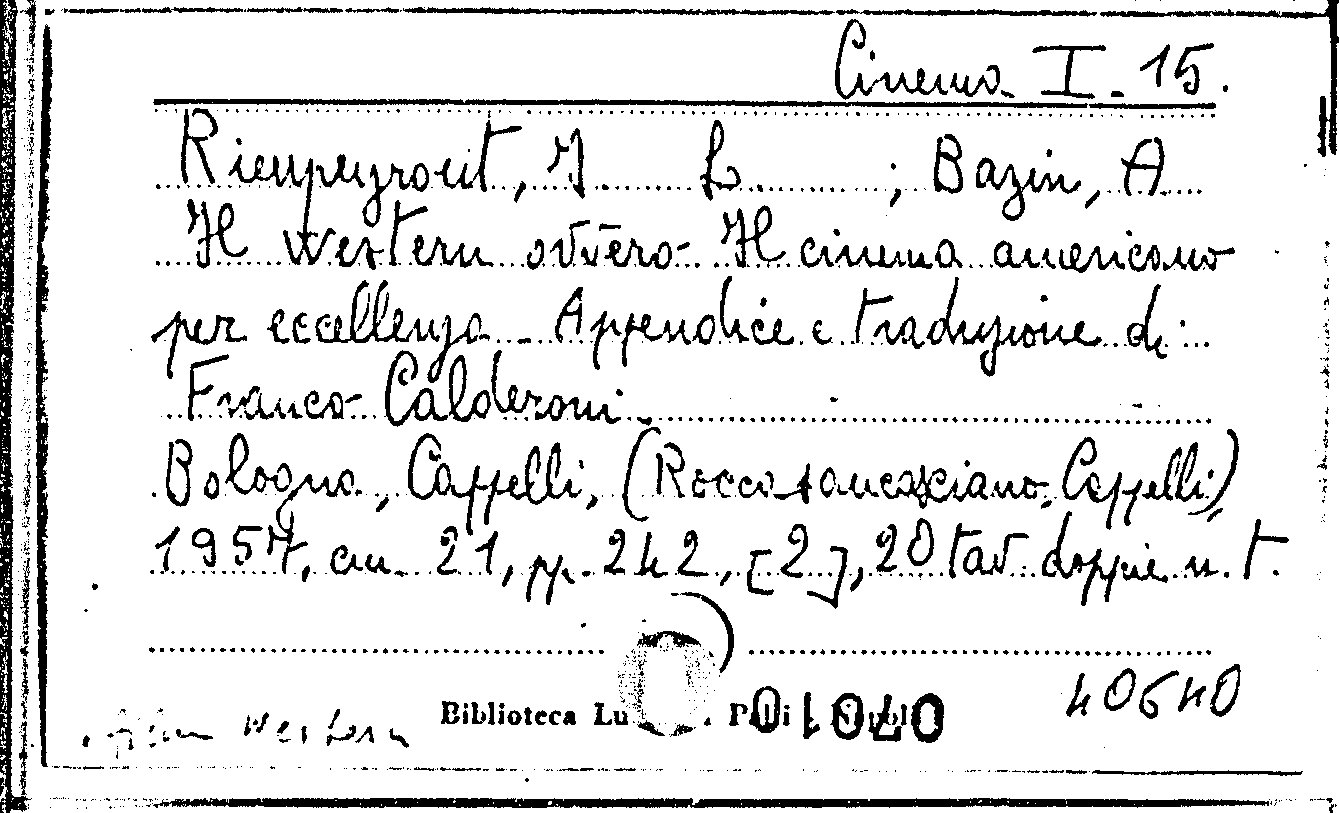 Cinema I. 15.
Rieupeyrout, J. L. ; Bazin, A
Il western ovvero Il cinema americano
per eccellenza. Appendice e traduzione di
Franco Calderoni.
Bologna, Cappelli, (Rocca San Casciano, Cappelli),
1957, cm. 21, pp. 242, [2], 20 tav doppie n. t.
40640
Biblioteca
film western